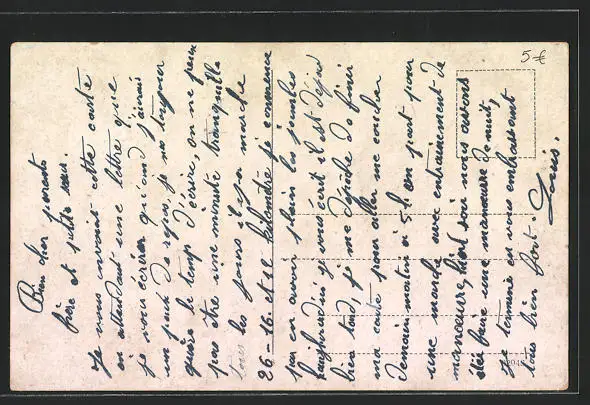 Bien cher parents
frère et petite sœur.
Je vous envoit cette carte
en attendant une lettre que
je vous écrirer quand j'aurais
un peut de repos, je nai toujour
guère le temp d'écrire, on ne peux
pas etre une minute tranquille
tous les jours il y a marche
26. 16. et 18 kilomètre je commence
par en avoir plein les jambes
haujourd'hui je vous écrit il est déjas
bien tard, je me dépêche de finir
ma carte pour aller me coucher
demain matin à 5h on part pour
une marche avec entrainement de
manœuvre, hier soir nous avons
étée faire une manœuvre de nuit,
Je termine en vous embrassant
tous bien fort. Louis.
5 €